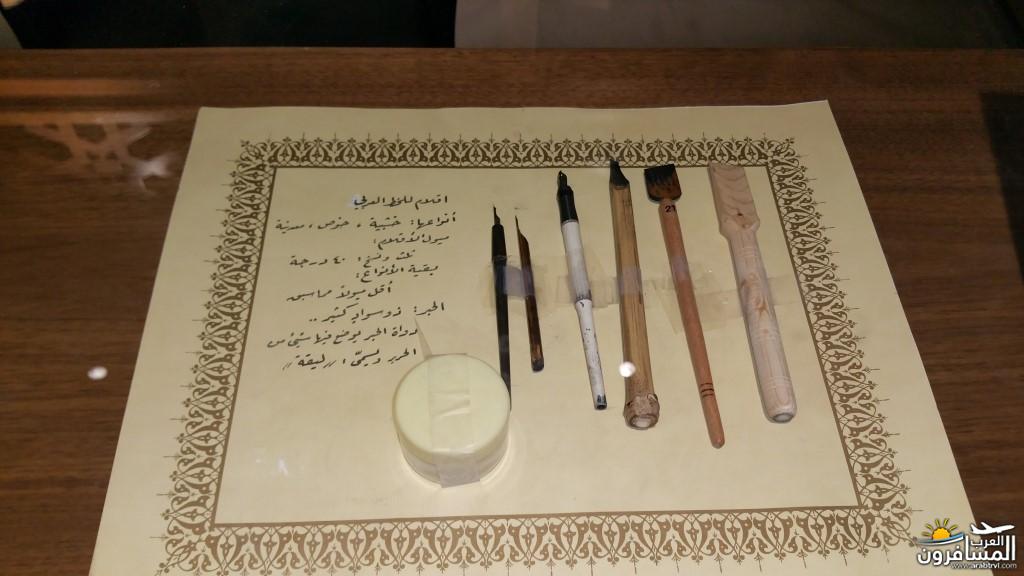 اقلام للخط العربي
أنواعها: خشبية ، خوص ، معدنية
ميول الأقلام:
ثلث ونسخ: ٤٠ درجة
بقية الأنواع:
أقل ميولاً مما سبق
الحبر: ذو سواد كثير ..
دواة الحبر يوضع فيها شيئ من
الحرير ويسمّى "ليقة"
21
العرب
المسافرون
www.arabtrvl.com